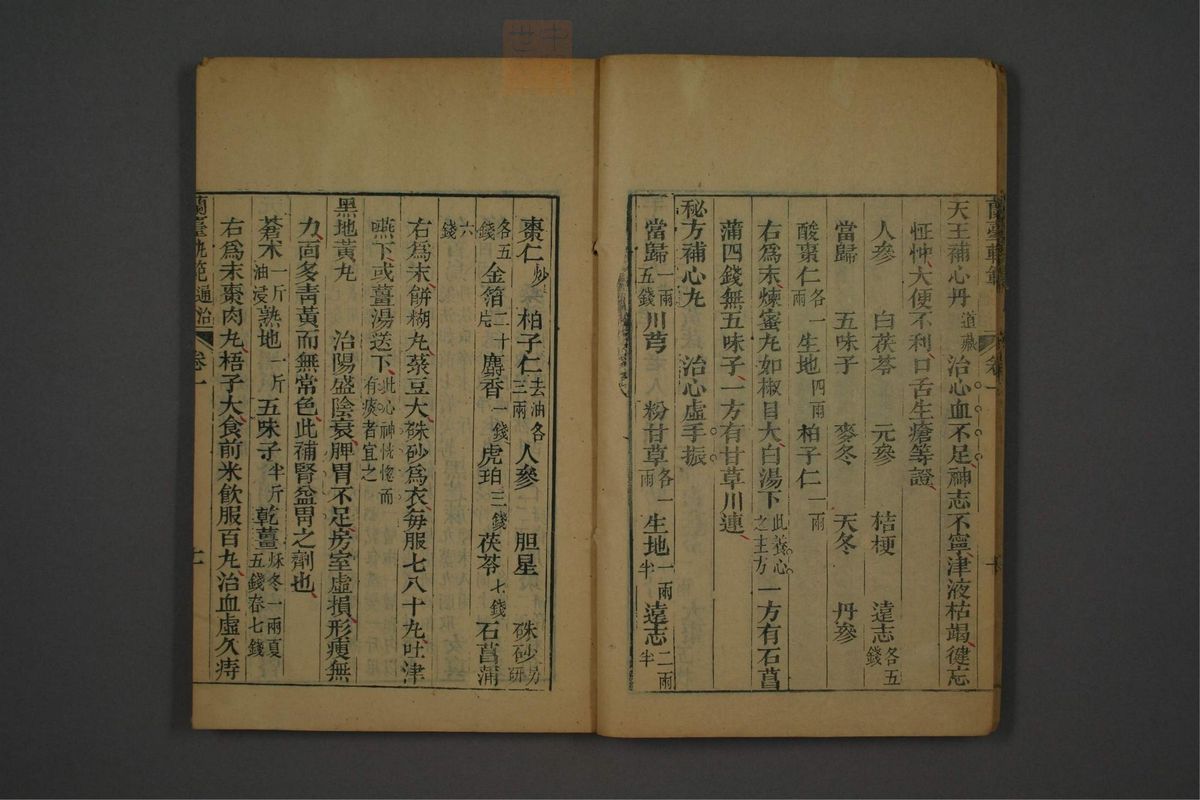 天王補心丹道藏治心血不足神志不寧津液枯竭徤忘
怔忡大便不利口舌生瘡等證
人參 白茯苓 元參 桔梗 遠志各五錢
當歸 五味子 麥冬 天冬 丹參
酸棗仁各一兩生地四兩柏子仁一兩
右爲末煉蜜丸如椒目大白湯下此養心之主方一方有石菖
蒲四錢無五味子一方有甘草川連
秘方補心丸 治心虛手振
當歸一兩五錢川芎 粉甘草各一兩生地一兩半遠志二兩半
棗仁炒柏子仁去油各三兩人參 胆星 硃砂另研
各五錢金箔二十片麝香一錢虎珀三錢茯苓七錢石菖蒲
六錢
右爲末餅糊丸菉豆大硃砂爲衣每服七八十丸吐津
嚥下或薑湯送下此心神恍惚而有痰者宜之
黑地黃丸 治陽盛陰衰脾胃不足房室虛損形瘦無
力面多靑黃而無常色此補腎益胃之劑也
蒼朮一斤油浸熟地一斤五味子半斤乾薑秌冬一兩夏五錢春七錢
右爲末棗肉丸梧子大食前米飲服百丸治血虛久痔
蘭臺軌範通治 卷一 七